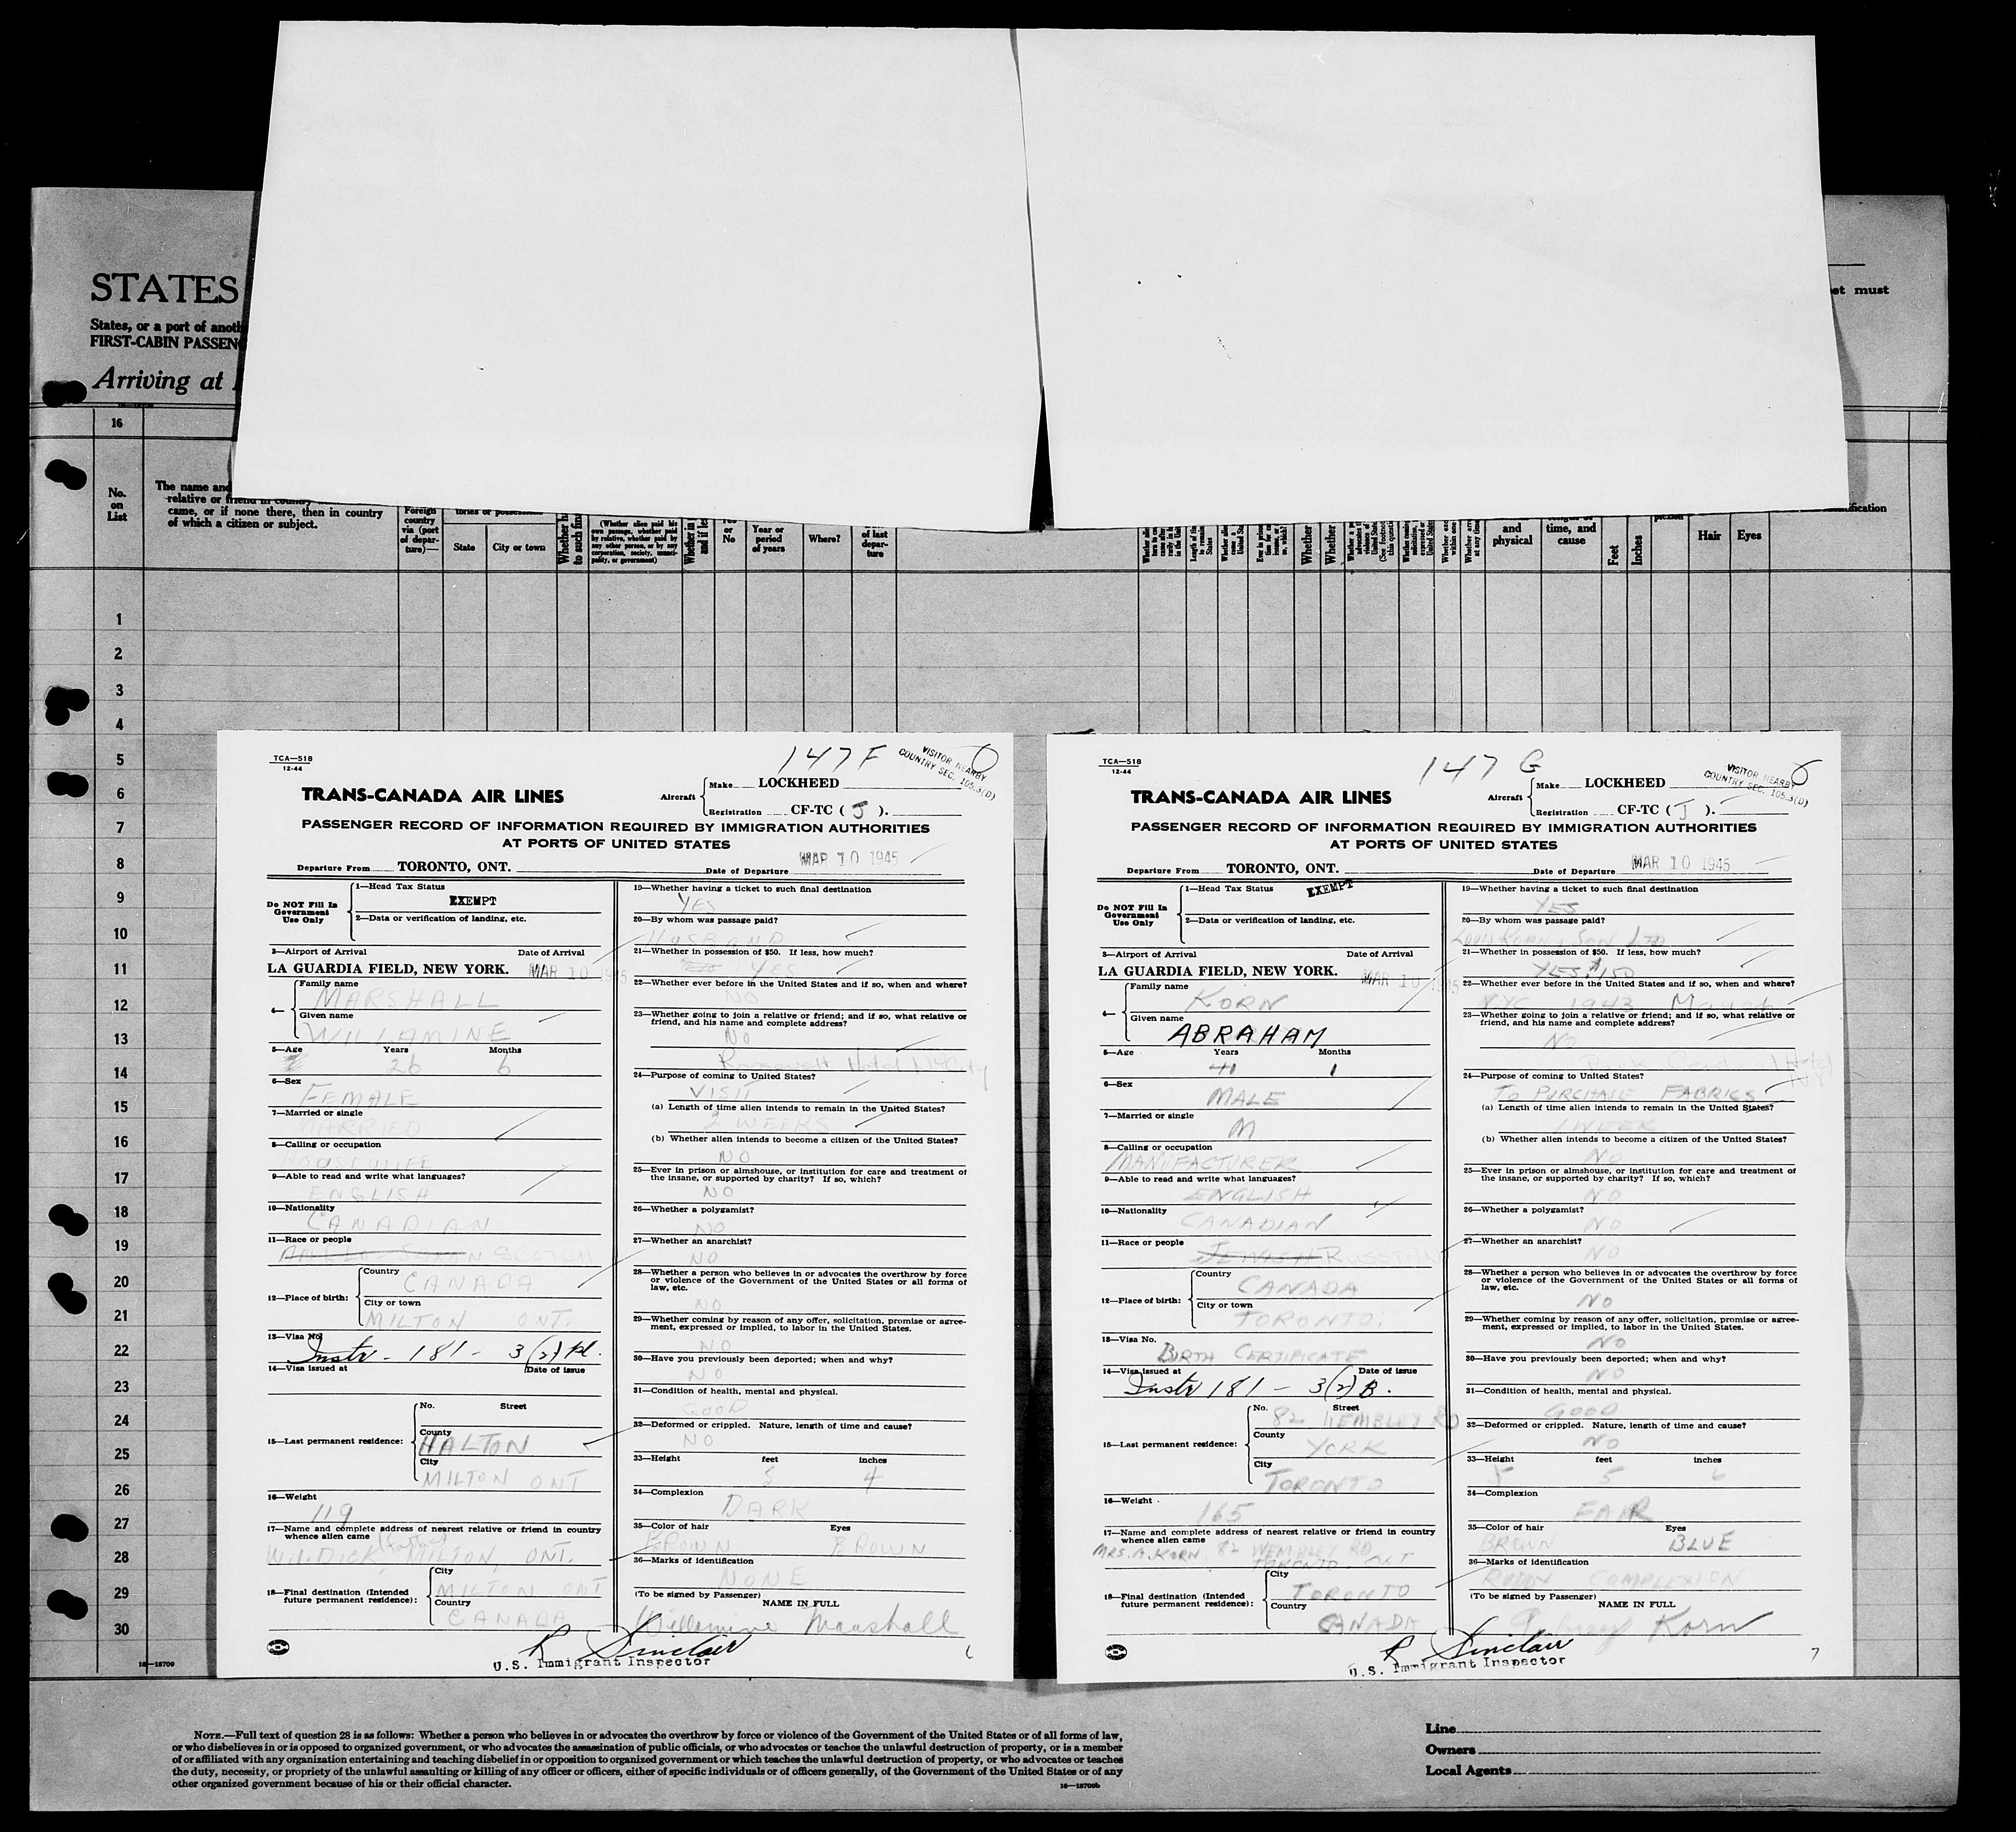 STATES
States, or a port of anoth
FIRST-CABIN PASSENG
Arriving at
et must
16
No. on List
The name and
relative or friend in country
came, or if none there, then in country
of which a citizen or subject.
Foreign country via (port of departure)—
State
City or town
(Whether alien paid his own passage, whether paid by relative, whether paid by any other person, or by any corporation, society, municipality, or government)
Yes or No
Year or period of years
Where?
of last departure
and physical
time, and cause
Feet
Inches
Hair
Eyes
1
2
3
4
5
6
7
8
9
10
11
12
13
14
15
16
17
18
19
20
21
22
23
24
25
26
27
28
29
30
16—18709
TCA—518
12-44
147 F
VISITOR NEARBY
COUNTRY SEC. 105.3(D)
TRANS-CANADA AIR LINES
Aircraft Make LOCKHEED
Registration CF-TC ( J ).
PASSENGER RECORD OF INFORMATION REQUIRED BY IMMIGRATION AUTHORITIES
AT PORTS OF UNITED STATES
Departure From TORONTO, ONT. Date of Departure MAR 10 1945
Do NOT Fill In Government Use Only
1—Head Tax Status
EXEMPT
2—Data or verification of landing, etc.
3—Airport of Arrival Date of Arrival
LA GUARDIA FIELD, NEW YORK. MAR 10 1945
4— Family name
MARSHALL
Given name
WILLAMINE
5—Age Years Months
26 6
6—Sex
FEMALE
7—Married or single
MARRIED
8—Calling or occupation
HOUSEWIFE
9—Able to read and write what languages?
ENGLISH
10—Nationality
CANADIAN
11—Race or people
SCOTCH
12—Place of birth: Country
CANADA
City or town
MILTON ONT.
13—Visa No.
Instr - 181 - 3(2) Pl.
14—Visa issued at Date of issue
15—Last permanent residence: No. Street
County
HALTON
City
MILTON ONT
16—Weight
119
17—Name and complete address of nearest relative or friend in country
whence alien came
W.I. DICK (father) MILTON, ONT.
18—Final destination (Intended future permanent residence): City
MILTON ONT
Country
CANADA
19—Whether having a ticket to such final destination
YES
20—By whom was passage paid?
HUSBAND
21—Whether in possession of $50. If less, how much?
YES
22—Whether ever before in the United States and if so, when and where?
NO
23—Whether going to join a relative or friend; and if so, what relative or
friend, and his name and complete address?
NO
Hotel
24—Purpose of coming to United States?
VISIT
(a) Length of time alien intends to remain in the United States?
2 WEEKS
(b) Whether alien intends to become a citizen of the United States?
NO
25—Ever in prison or almshouse, or institution for care and treatment of
the insane, or supported by charity? If so, which?
NO
26—Whether a polygamist?
NO
27—Whether an anarchist?
NO
28—Whether a person who believes in or advocates the overthrow by force
or violence of the Government of the United States or all forms of
law, etc.
NO
29—Whether coming by reason of any offer, solicitation, promise or agree-
ment, expressed or implied, to labor in the United States.
NO
30—Have you previously been deported; when and why?
NO
31—Condition of health, mental and physical.
GOOD
32—Deformed or crippled. Nature, length of time and cause?
NO
33—Height feet inches
5 4
34—Complexion
DARK
35—Color of hair Eyes
BROWN BROWN
36—Marks of identification
NONE
(To be signed by Passenger)
NAME IN FULL
Willamine Marshall
R Sinclair
U.S. Immigrant Inspector
6
TCA—518
12-44
147 G
VISITOR NEARBY
COUNTRY SEC. 105.3(D)
TRANS-CANADA AIR LINES
Aircraft Make LOCKHEED
Registration CF-TC ( J ).
PASSENGER RECORD OF INFORMATION REQUIRED BY IMMIGRATION AUTHORITIES
AT PORTS OF UNITED STATES
Departure From TORONTO, ONT. Date of Departure MAR 10 1945
Do NOT Fill In Government Use Only
1—Head Tax Status
EXEMPT
2—Data or verification of landing, etc.
3—Airport of Arrival Date of Arrival
LA GUARDIA FIELD, NEW YORK. MAR 10 1945
4— Family name
KORN
Given name
ABRAHAM
5—Age Years Months
41 1
6—Sex
MALE
7—Married or single
M
8—Calling or occupation
MANIFACTURER
9—Able to read and write what languages?
ENGLISH
10—Nationality
CANADIAN
11—Race or people
JEWISH RUSSIAN
12—Place of birth: Country
CANADA
City or town
TORONTO.
13—Visa No.
BIRTH CERTIFICATE
14—Visa issued at Date of issue
Instr 181 - 3(2) B.
15—Last permanent residence: No. Street
82 WEMBLEY RD
County
YORK
City
TORONTO
16—Weight
165
17—Name and complete address of nearest relative or friend in country
whence alien came
MRS. A. KORN 82 WEMBLEY RD
TORONTO ONT
18—Final destination (Intended future permanent residence): City
TORONTO
Country
CANADA
19—Whether having a ticket to such final destination
YES
20—By whom was passage paid?
Louis Korn & Son LTD
21—Whether in possession of $50. If less, how much?
YES $150
22—Whether ever before in the United States and if so, when and where?
NYC 1943
23—Whether going to join a relative or friend; and if so, what relative or
friend, and his name and complete address?
NO
Hotel
24—Purpose of coming to United States?
To PURCHASE FABRICS
(a) Length of time alien intends to remain in the United States?
1 WEEK
(b) Whether alien intends to become a citizen of the United States?
NO
25—Ever in prison or almshouse, or institution for care and treatment of
the insane, or supported by charity? If so, which?
NO
26—Whether a polygamist?
NO
27—Whether an anarchist?
NO
28—Whether a person who believes in or advocates the overthrow by force
or violence of the Government of the United States or all forms of
law, etc.
NO
29—Whether coming by reason of any offer, solicitation, promise or agree-
ment, expressed or implied, to labor in the United States.
NO
30—Have you previously been deported; when and why?
NO
31—Condition of health, mental and physical.
GOOD
32—Deformed or crippled. Nature, length of time and cause?
NO
33—Height feet inches
5 5 6
34—Complexion
FAIR
35—Color of hair Eyes
BROWN BLUE
36—Marks of identification
RUDDY COMPLEXION
(To be signed by Passenger)
NAME IN FULL
Korn
R Sinclair
U.S. Immigrant Inspector
7
NOTE.—Full text of question 28 is as follows: Whether a person who believes in or advocates the overthrow by force or violence of the Government of the United States or of all forms of law,
or who disbelieves in or is opposed to organized government, or who advocates the assassination of public officials, or who advocates or teaches the unlawful destruction of property, or is a member
of or affiliated with any organization entertaining and teaching disbelief in or opposition to organized government or which teaches the unlawful destruction of property, or who advocates or teaches
the duty, necessity, or propriety of the unlawful assaulting or killing of any officer or officers, either of specific individuals or of officers generally, of the Government of the United States or of any
other organized government because of his or their official character.
16—18709b
Line
Owners
Local Agents